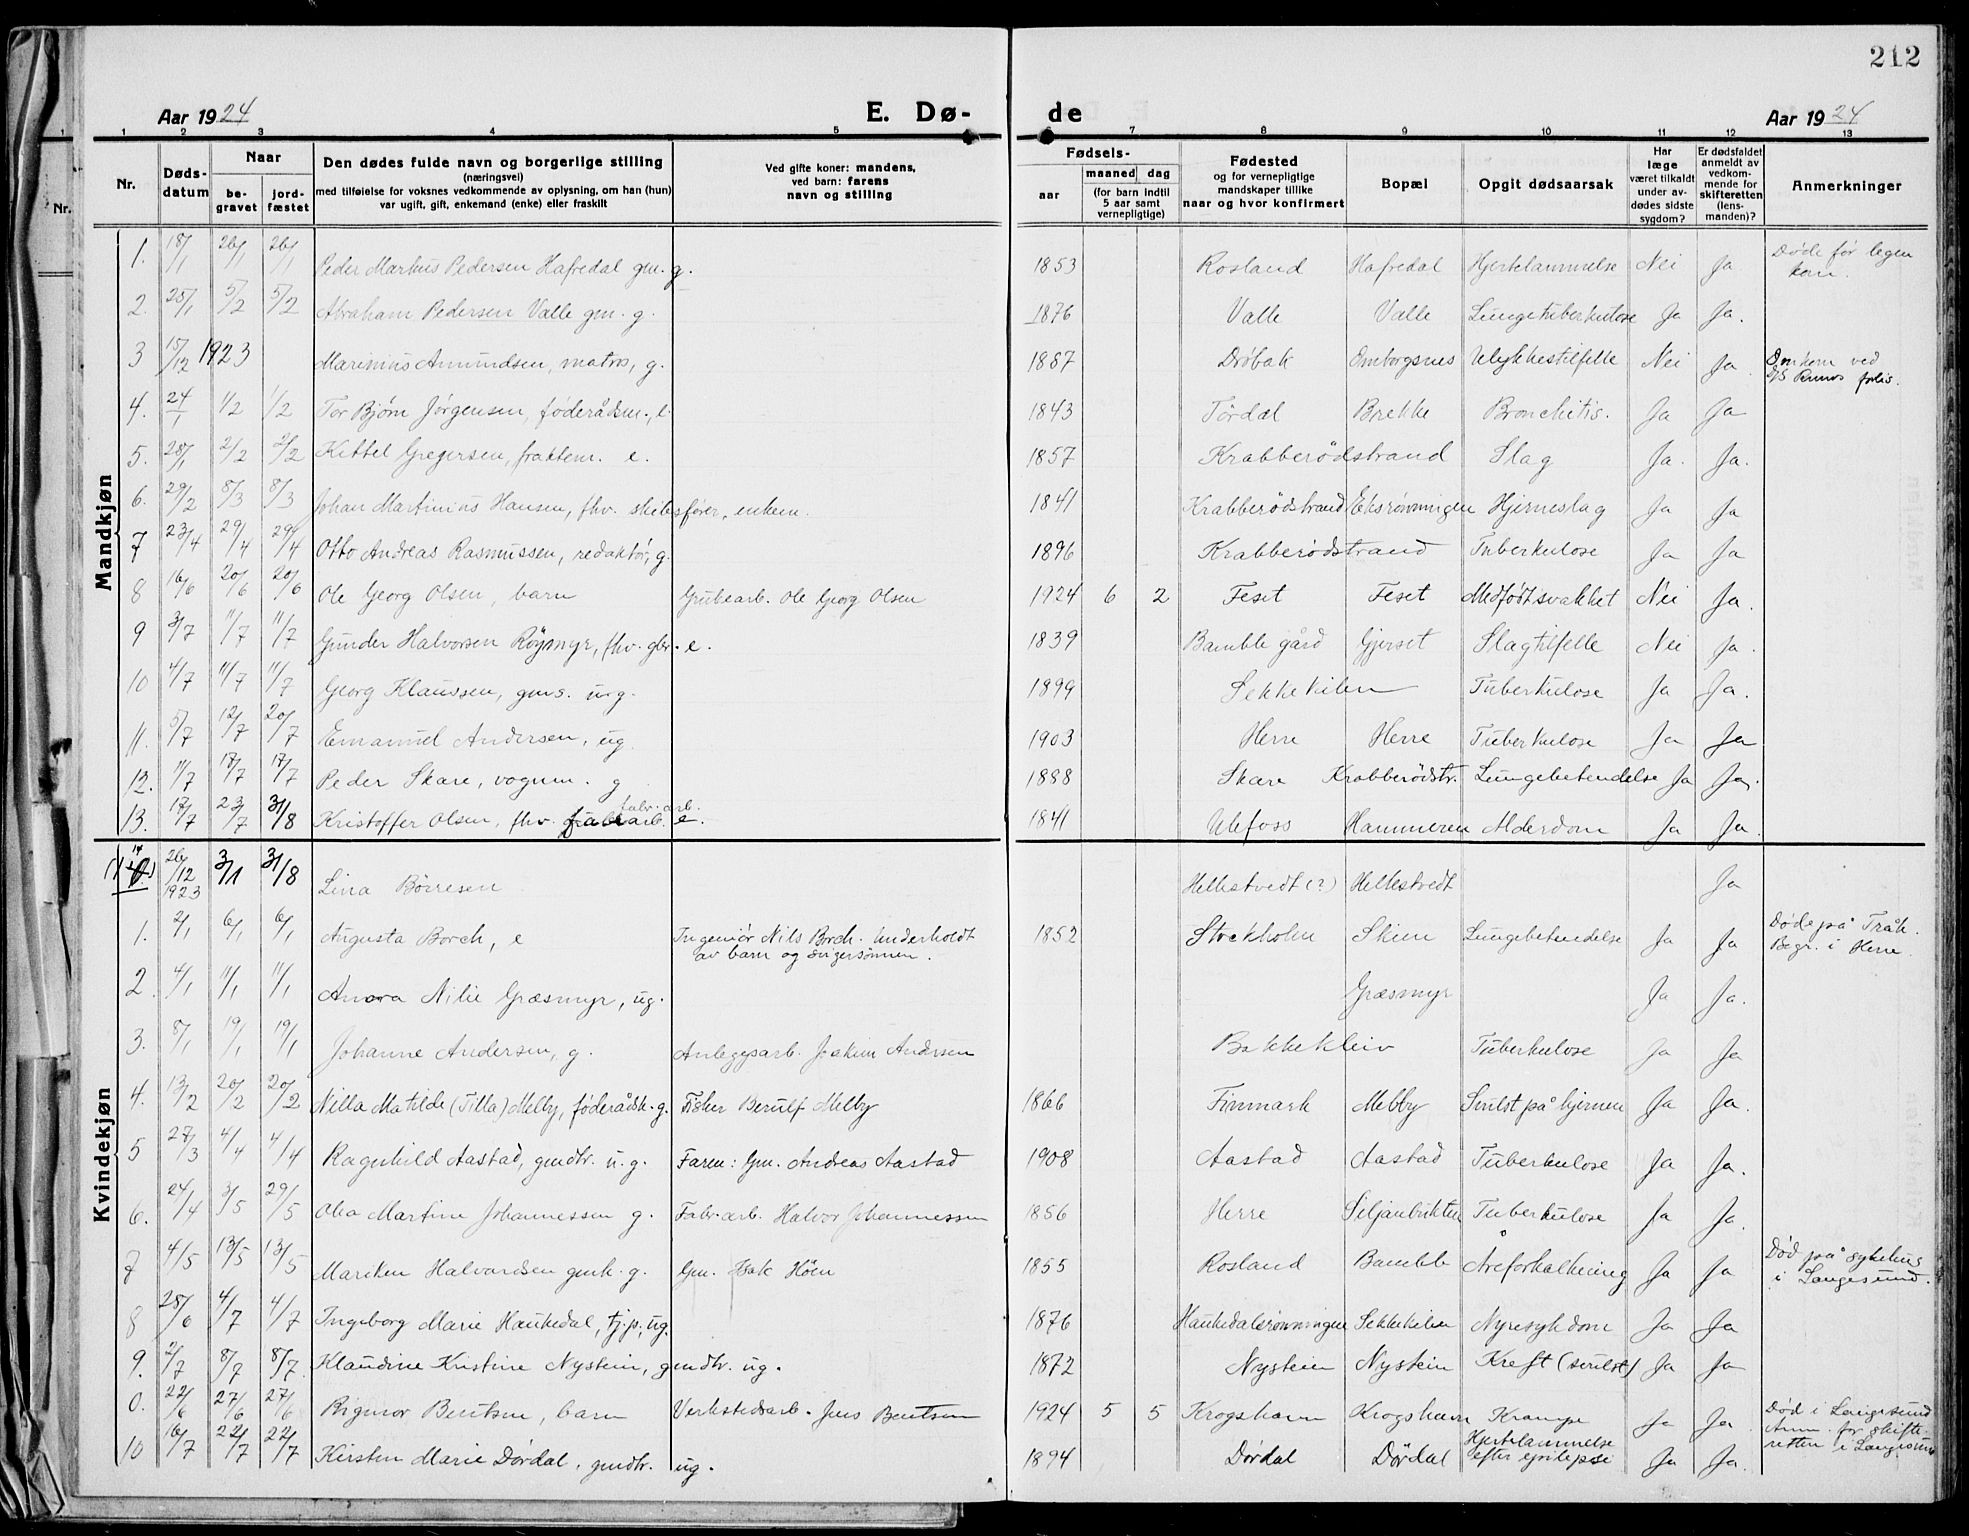 212
Aar 1924 E. Dø- de Aar 1924
1 1 2 3 4 5 7 8 9 10 11 12 13
Nr. Nr. Døds-datum Naar be-gravet jord-fæstet Den dødes fulde navn og borgerlige stilling (næringsvei) med tilføielse for voksnes vedkommende av oplysning, om han (hun) var ugift, gift, enkemand (enke) eller fraskilt Ved gifte koner: mandens, ved barn: farens navn og stilling Fødsels- aar maaned dag (for barn indtil 5 aar samt vernepligtige) Fødested og for vernepligtige mandskaper tillike naar og hvor konfirmert Bopæl Opgit dødsaarsak Har læge været tilkaldt under av-dødes sidste sygdom? Er dødsfaldet anmeldt av vedkom-mende for skifteretten (lens-manden)? Anmerkninger
Mandkjøn
1. 18/1 26/1 26/1 Peder Markus Pedersen Hafredal gm. g. 1853 Rosland Hafredal Hjertelammelse Nei Ja Døde før legen kom.
2. 25/1 5/2 5/2 Abraham Pedersen Valle gm. g. 1876 Valle Valle Lungetuberkulose Ja Ja.
3 15/12 1923 Marinius Amundsen, matros, g. 1887 Drøbak Omborgsnes Ulykkestilfelle Nei Ja Omkom ved forlis.
4. 24/1 1/2 1/2 Tor Bjørn Jørgensen, føderådsm., e. 1843 Tørdal Brekke Bronchitis. Ja Ja
5. 28/1 2/2 2/2 Kittel Gregersen, fraktem. e. 1857 Krabberødstrand Slag Ja. Ja.
6. 29/2 8/3 8/3 Johan Martinius Hansen, fhv. skibsfører, enkem. 1841 Krabberødstrand Eksrønningen Hjerneslag Ja Ja
7 23/4 29/4 29/4 Otto Andreas Rasmussen, redaktør, g. 1896 Krabberødstrand Tuberkulose Ja Ja
8 16/6 20/6 20/6 Ole Georg Olsen, barn Grubearb. Ole Georg Olsen 1924 6 2 Feset Feset Medfødt svakhet Nei Ja.
9 3/7 11/7 11/7 Gunder Halvorsen Røysmyr, fhv. gbr. e. 1839 Bamble gård Gjerset Slagtilfelle Nei Ja.
10 4/7 11/7 11/7 Georg Klaussen, gms. ug. 1899 Sekkekilen Tuberkulose Ja Ja.
11. 5/7 12/7 20/7 Emanuel Andersen, ug. 1903 Herre Herre Tuberkulose Ja Ja
12. 11/7 17/7 17/7 Peder Skare, vognm. g 1888 Skare Krabberødstr. Lungebetendelse Ja Ja
13. 17/7 23/7 31/8 Kristoffer Olsen, fhv. fabr. arb. e. 1841 Ulefoss Hammeren Alderdom Ja Ja.
Kvindekjøn
26/12 1923 3/1 31/8 Lina Børresen Helkstvedt (?) Helkestvedt Ja
1. 2/1 6/1 6/1 Augusta Borch, e Ingeniør Nils Borch. Underholdt av barn og svigersønnen. 1852 Stockholm Skien Lungebetendelse Ja Ja Døde på Tråk. Begr. i Herre.
2. 4/1 11/1 11/1 Anora Nilie Græsmyr, ug. Græsmyr Ja Ja.
3. 8/1 19/1 19/1 Johanne Andersen, g. Anlegsarb. Joakim Andersen Bakkekleiv Tuberkulose Ja Ja
4. 13/2 20/2 20/2 Nilla Matilde (Tilla) Melby, føderådsk. g. Fisker Berulf Melby 1866 Finmark Melby Svulst på hjernen Ja Ja.
5 27/3 4/4 4/4 Ragnhild Aastad, gmdtr. u.g. Faren: Gm. Andreas Aastad 1908 Aastad Aastad Tuberkulose Ja Ja.
6. 24/4 3/5 29/5 Olea Martine Johannessen g. Fabr.arb. Halvor Johannessen 1856 Herre Siljanbukten Tuberkulose Ja Ja.
7 4/5 13/5 13/5 Mariken Halvardsen gmk. g. Gm. Isak Høen 1855 Rosland Bamble Åreforkalkning Ja Ja Død på sykehus i Langesund.
8 28/6 4/7 4/7 Ingeborg Marie Haukedal, tj.p., ug. 1876 Haukedalsrønningen Sekkekilen Nyresykdom Ja Ja
9. 2/7 8/7 8/7 Klaudine Kristine Nystein, gmdtr. ug. 1872 Nystein Nystein Kreft (svulst) Ja Ja
0. 22/6 27/6 27/6 Rigmor Bentsen, barn Verkstedsarb. Jens Bentsen 1924 5 5 Krogshavn Krogshavn Krampe Ja Ja Død i Langesund Anm. for skifteretten i Langesund
10 16/7 22/7 22/7 Kirsten Marie Dørdal, gmdtr. ug. 1894 Dørdal Dørdal Hjertelammelse efter epilepsi Ja Ja.